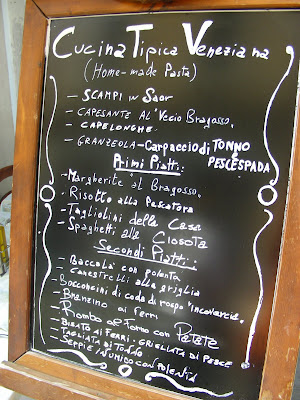 Cucina Tipica Veneziana
(Home-made Pasta)
- SCAMPI IN Saor
- CAPESANTE AL "Vecio Bragosso.
- CAPELONGHE.
- GRANZEOLA - Carpaccio di TONNO
e PESCESPADA
Primi Piatti:
- Margherite al Bragosso.
- Risotto alla Pescatora
- Tagliolini della Casa
- Spaghetti alla Ciosota
Secondi Piatti:
- Baccalà con polenta
- Canestrelli alla griglia
- Bocconcini di coda di rospo "incovercià".
- Branzino ai ferri
- Rombo al forno con Patate
- BISATO AI FERRI - GRIGLIATA DI PESCE
- TAGLIATA DI TONNO
- SEPPIE IN UMICO CON POLENTA